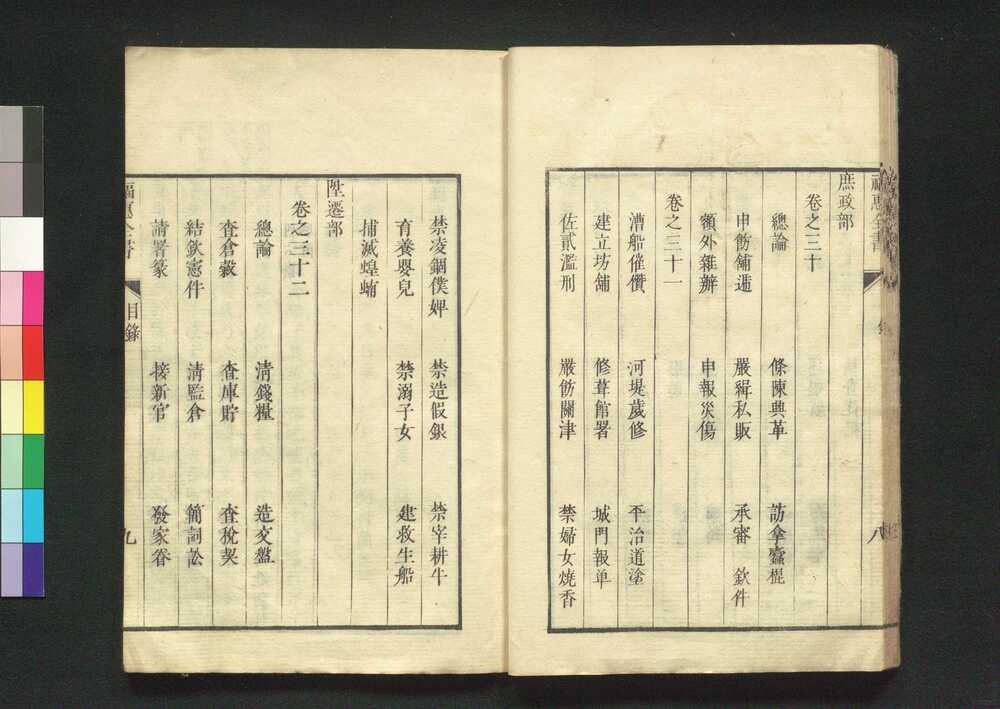 福惠全書
八
庶政部
卷之三十
總論 條陳興革 訪拿蠹棍
申飭舖遞 嚴緝私販 承審 欽件
額外雜辦 申報災傷
卷之三十一
漕船催儹 河堤歲修 平治道塗
建立坊舖 修葺館署 城門報单
佐貳濫刑 嚴飭關津 禁婦女燒香
禁凌錮僕婢 禁造假銀 禁宰耕牛
育養嬰兒 禁溺子女 建救生船
捕滅蝗蝻
陞遷部
卷之三十二
總論 清錢糧 造交盤
查倉穀 查庫貯 查稅契
結欽憲件 清監倉 簡詞訟
請署篆 接新官 發家眷
福惠全書 目錄 九